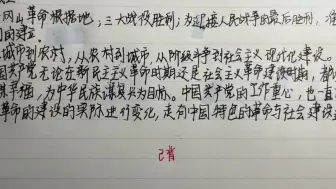 冈山革命根据地；三大战役胜利；为迎接人民战争的最后胜利，准
的建立。
城市到农村，从农村到城市，从阶级斗争到社会主义现代化建设。
国共产党无论在新民主主义革命时期还是社会主义革命建设时期，都
幸福，为中华民族谋复兴为目标。中国共产党的工作重心，也一直
革命的建设的实际进行变化，走向中国特色的革命与社会建设
已背